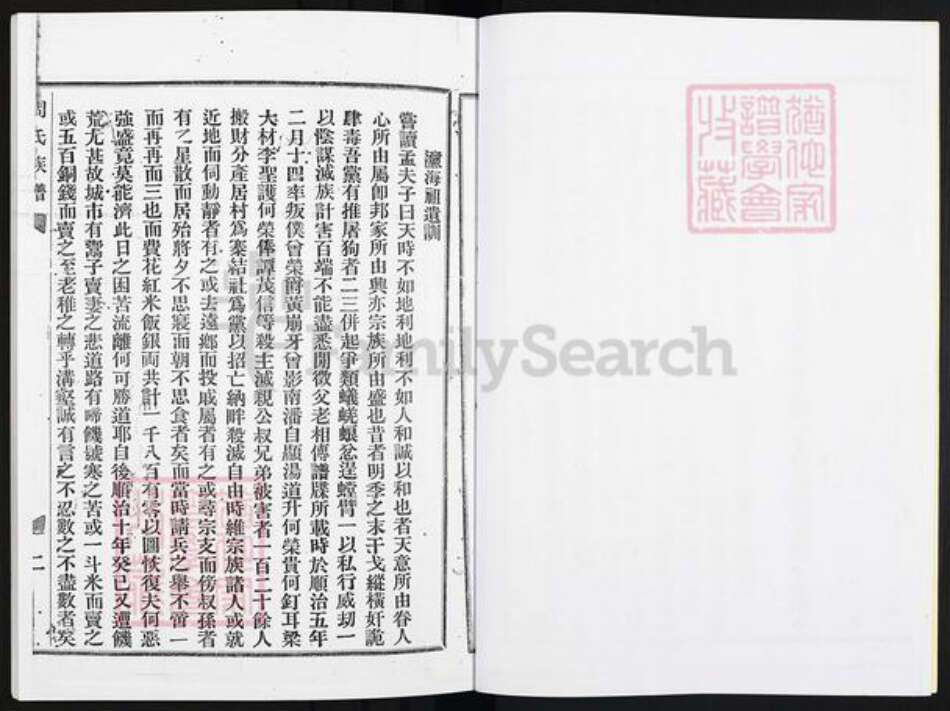 瀛海祖遺訓
嘗讀孟夫子曰天時不如地利地利不如人和誠以和也者天意所由眷人
心所由屬卽邦家所由興亦宗族所由盛也昔者明季之末干戈縱橫奸詭
肆毒吾黨有推屠狗者二三併起爭類蟻蟯螘忿逞螳臂一以私行威刧一
以陰謀滅族計害百端不能盡悉閒徵父老相傳譜牒所載時於順治五年
二月十四率叛僕曾榮爵黃崩牙曾影南潘自顯湯道升何榮貴何釘耳梁
大材李聖護何榮俸譚茂信等殺主滅親公叔兄弟被害者一百二十餘人
搬財分產居村爲寨結社爲黨以招亡納畔殺滅自由時維宗族諸人或就
近地而伺動靜者有之或去遠鄉而投戚屬者有之或尋宗支而傍叔孫者
有之星散而居殆將夕不思寢而朝不思食者矣而當時請兵之舉不啻一
而再再而三也而費花紅米飯銀両共計一千八百有零以圖恢復夫何惡
強盛竟莫能濟此日之困苦流離何可勝道耶自後順治十年癸巳又遭饑
荒尤甚故城市有鬻子賣妻之悲道路有啼饑號寒之苦或一斗米而賣之
或五百銅錢而賣之至老稚之轉乎溝壑誠有言之不忍數之不盡數者矣
周氏族譜
二
FamilySearch
譜學會
收藏